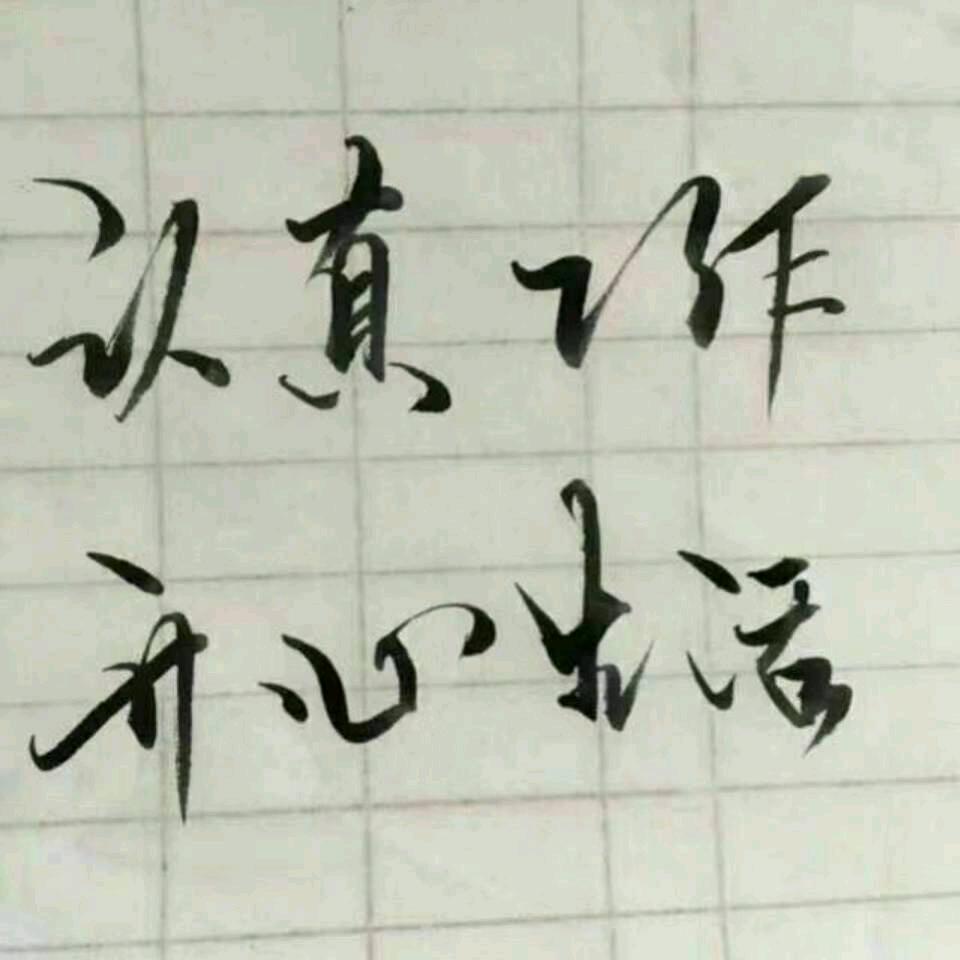 认真工作
开心生活